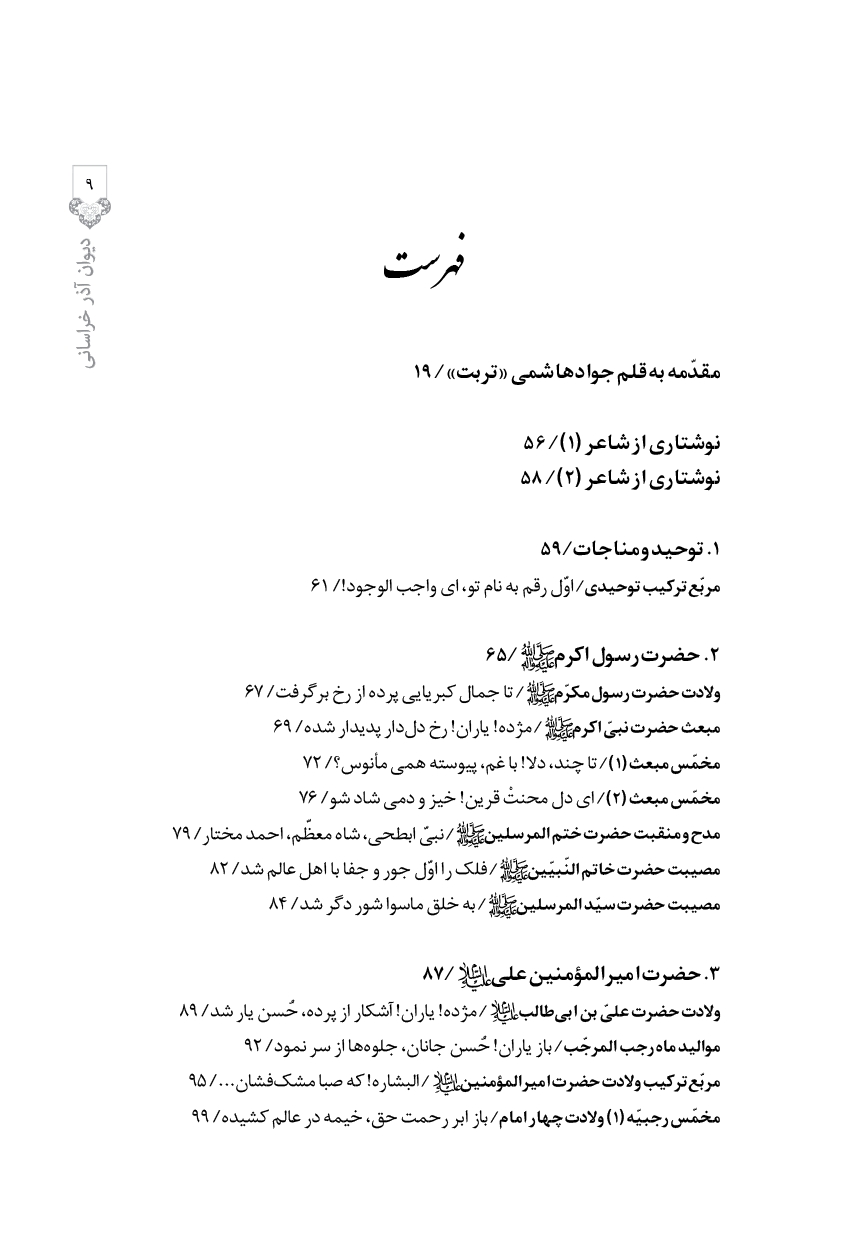 ۹
دیوان آذر خراسانی
فهرست
مقدّمه به قلم جواد هاشمی «تربت» / ۱۹
نوشتاری از شاعر (۱) / ۵۶
نوشتاری از شاعر (۲) / ۵۸
۱. توحید و مناجات / ۵۹
مربّع ترکیب توحیدی / اوّل رقم به نام تو، ای واجب الوجود! / ۶۱
۲. حضرت رسول اکرم ﷺ / ۶۵
ولادت حضرت رسول مکرّم ﷺ / تا جمال کبریایی پرده از رخ برگرفت / ۶۷
مبعث حضرت نبیّ اکرم ﷺ / مژده! یاران! رخ دل‌دار پدیدار شده / ۶۹
مخمّس مبعث (۱) / تا چند، دلا! با غم، پیوسته همی مأنوس؟ / ۷۲
مخمّس مبعث (۲) / ای دل محنتْ قرین! خیز و دمی شاد شو / ۷۶
مدح و منقبت حضرت ختم المرسلین ﷺ / نبیّ ابطحی، شاه معظّم، احمد مختار / ۷۹
مصیبت حضرت خاتم النّبیّین ﷺ / فلک را اوّل جور و جفا با اهل عالم شد / ۸۲
مصیبت حضرت سیّد المرسلین ﷺ / به خلق ماسوا شور دگر شد / ۸۴
۳. حضرت امیرالمؤمنین علی علیه‌السلام / ۸۷
ولادت حضرت علیّ بن ابی‌طالب علیه‌السلام / مژده! یاران! آشکار از پرده، حُسن یار شد / ۸۹
موالید ماه رجب المرجّب / باز یاران! حُسن جانان، جلوه‌ها از سر نمود / ۹۲
مربّع ترکیب ولادت حضرت امیرالمؤمنین علیه‌السلام / البشاره! که صبا مشک‌فشان... / ۹۵
مخمّس رجبیّه (۱) ولادت چهار امام / باز ابر رحمت حق، خیمه در عالم کشیده / ۹۹